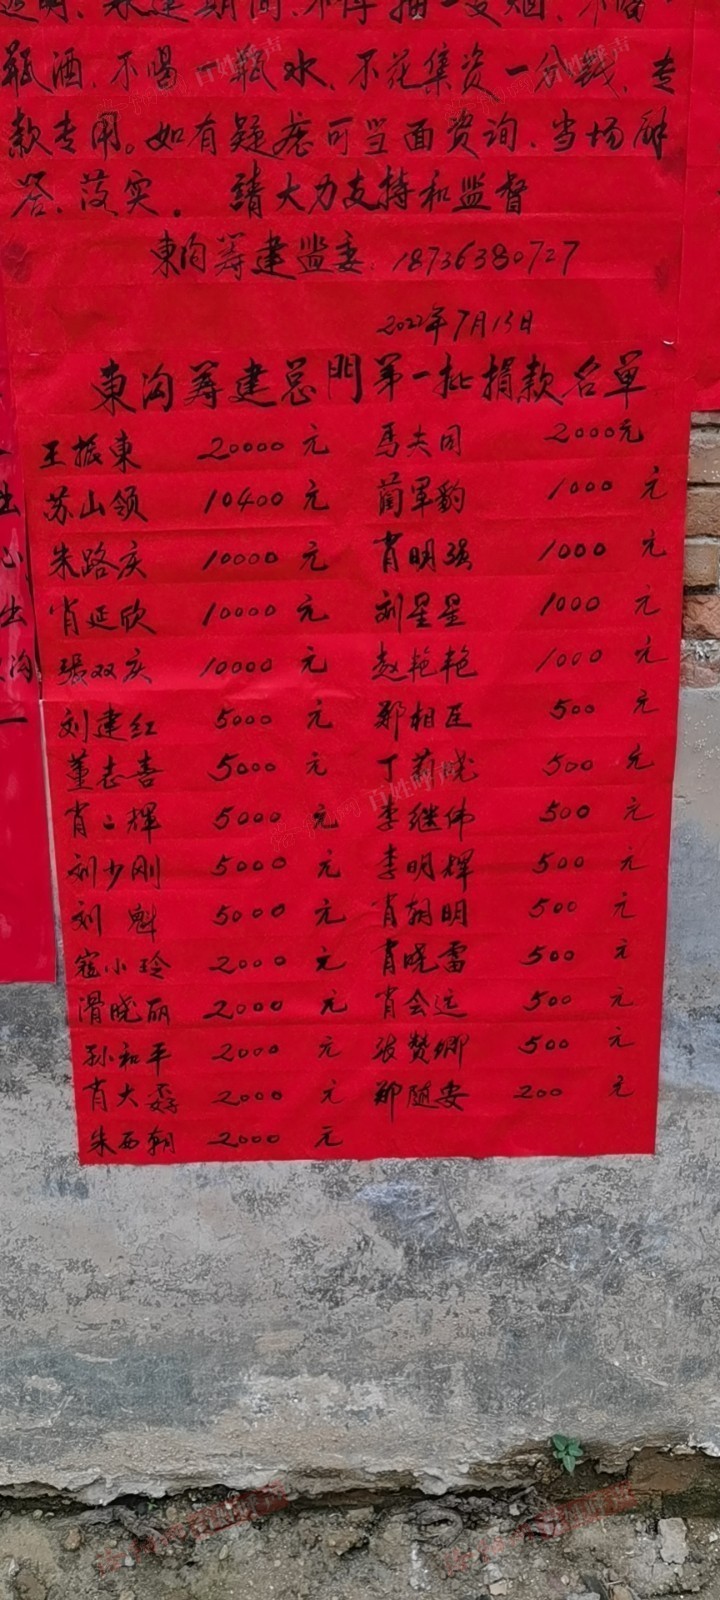 透明、承建期间、不得抽一支烟、不喝一
瓶酒、不喝一瓶水、不花集资一分钱、专
款专用。如有疑虑可当面资询、当场解
答、落实。 請大力支持和监督
東沟筹建监委:18736380727
2022年7月15日
東沟筹建总門第一批捐款名单
王振東 20000元 馬夫同 2000元
苏山领 10400元 蔺軍豹 1000元
朱路庆 10000元 肖明强 1000元
肖延欣 10000元 刘星星 1000元
張双庆 10000元 赵艳艳 1000元
刘建红 5000元 郑相臣 500元
董志喜 5000元 丁 500元
肖二辉 5000元 李继伟 500元
刘少刚 5000元 李明輝 500元
刘 魁 5000元 肖朝明 500元
寇小玲 2000元 肖晓雷 500元
滑晓丽 2000元 肖会远 500元
孙和平 2000元 張赞卿 500元
肖大孬 2000元 郑随安 200元
朱西朝 2000元
百姓呼声
百姓呼声